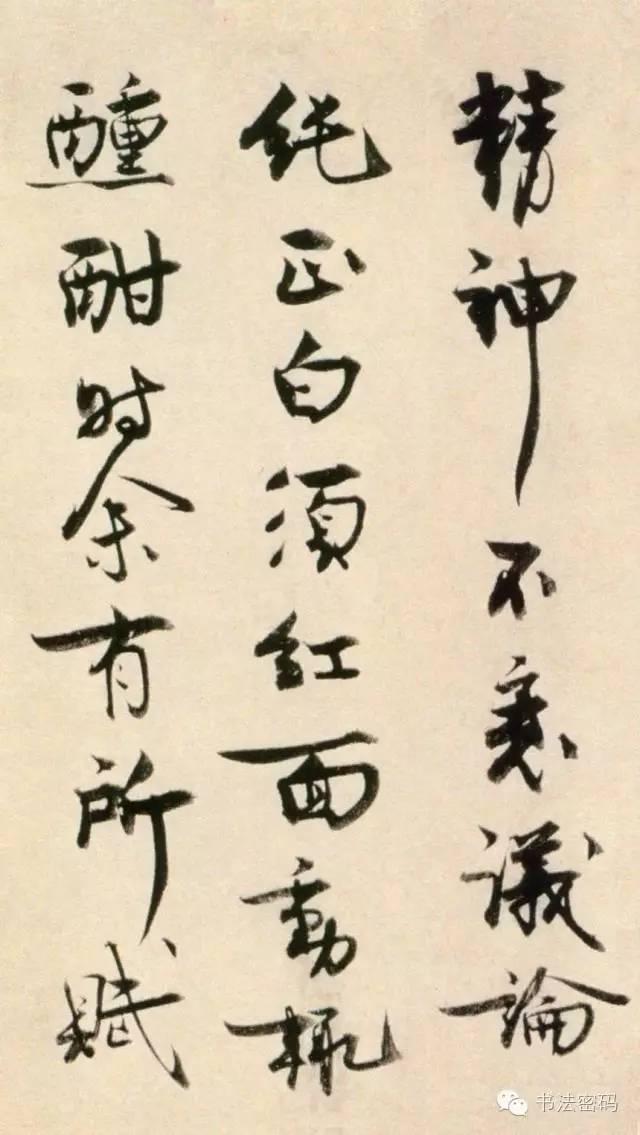 精神不衰議論
純正白須紅面動輒
醺酣时余有所賦
书法密码